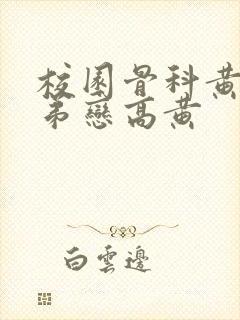 校園骨科黃
弟戀高黃
白雲邊